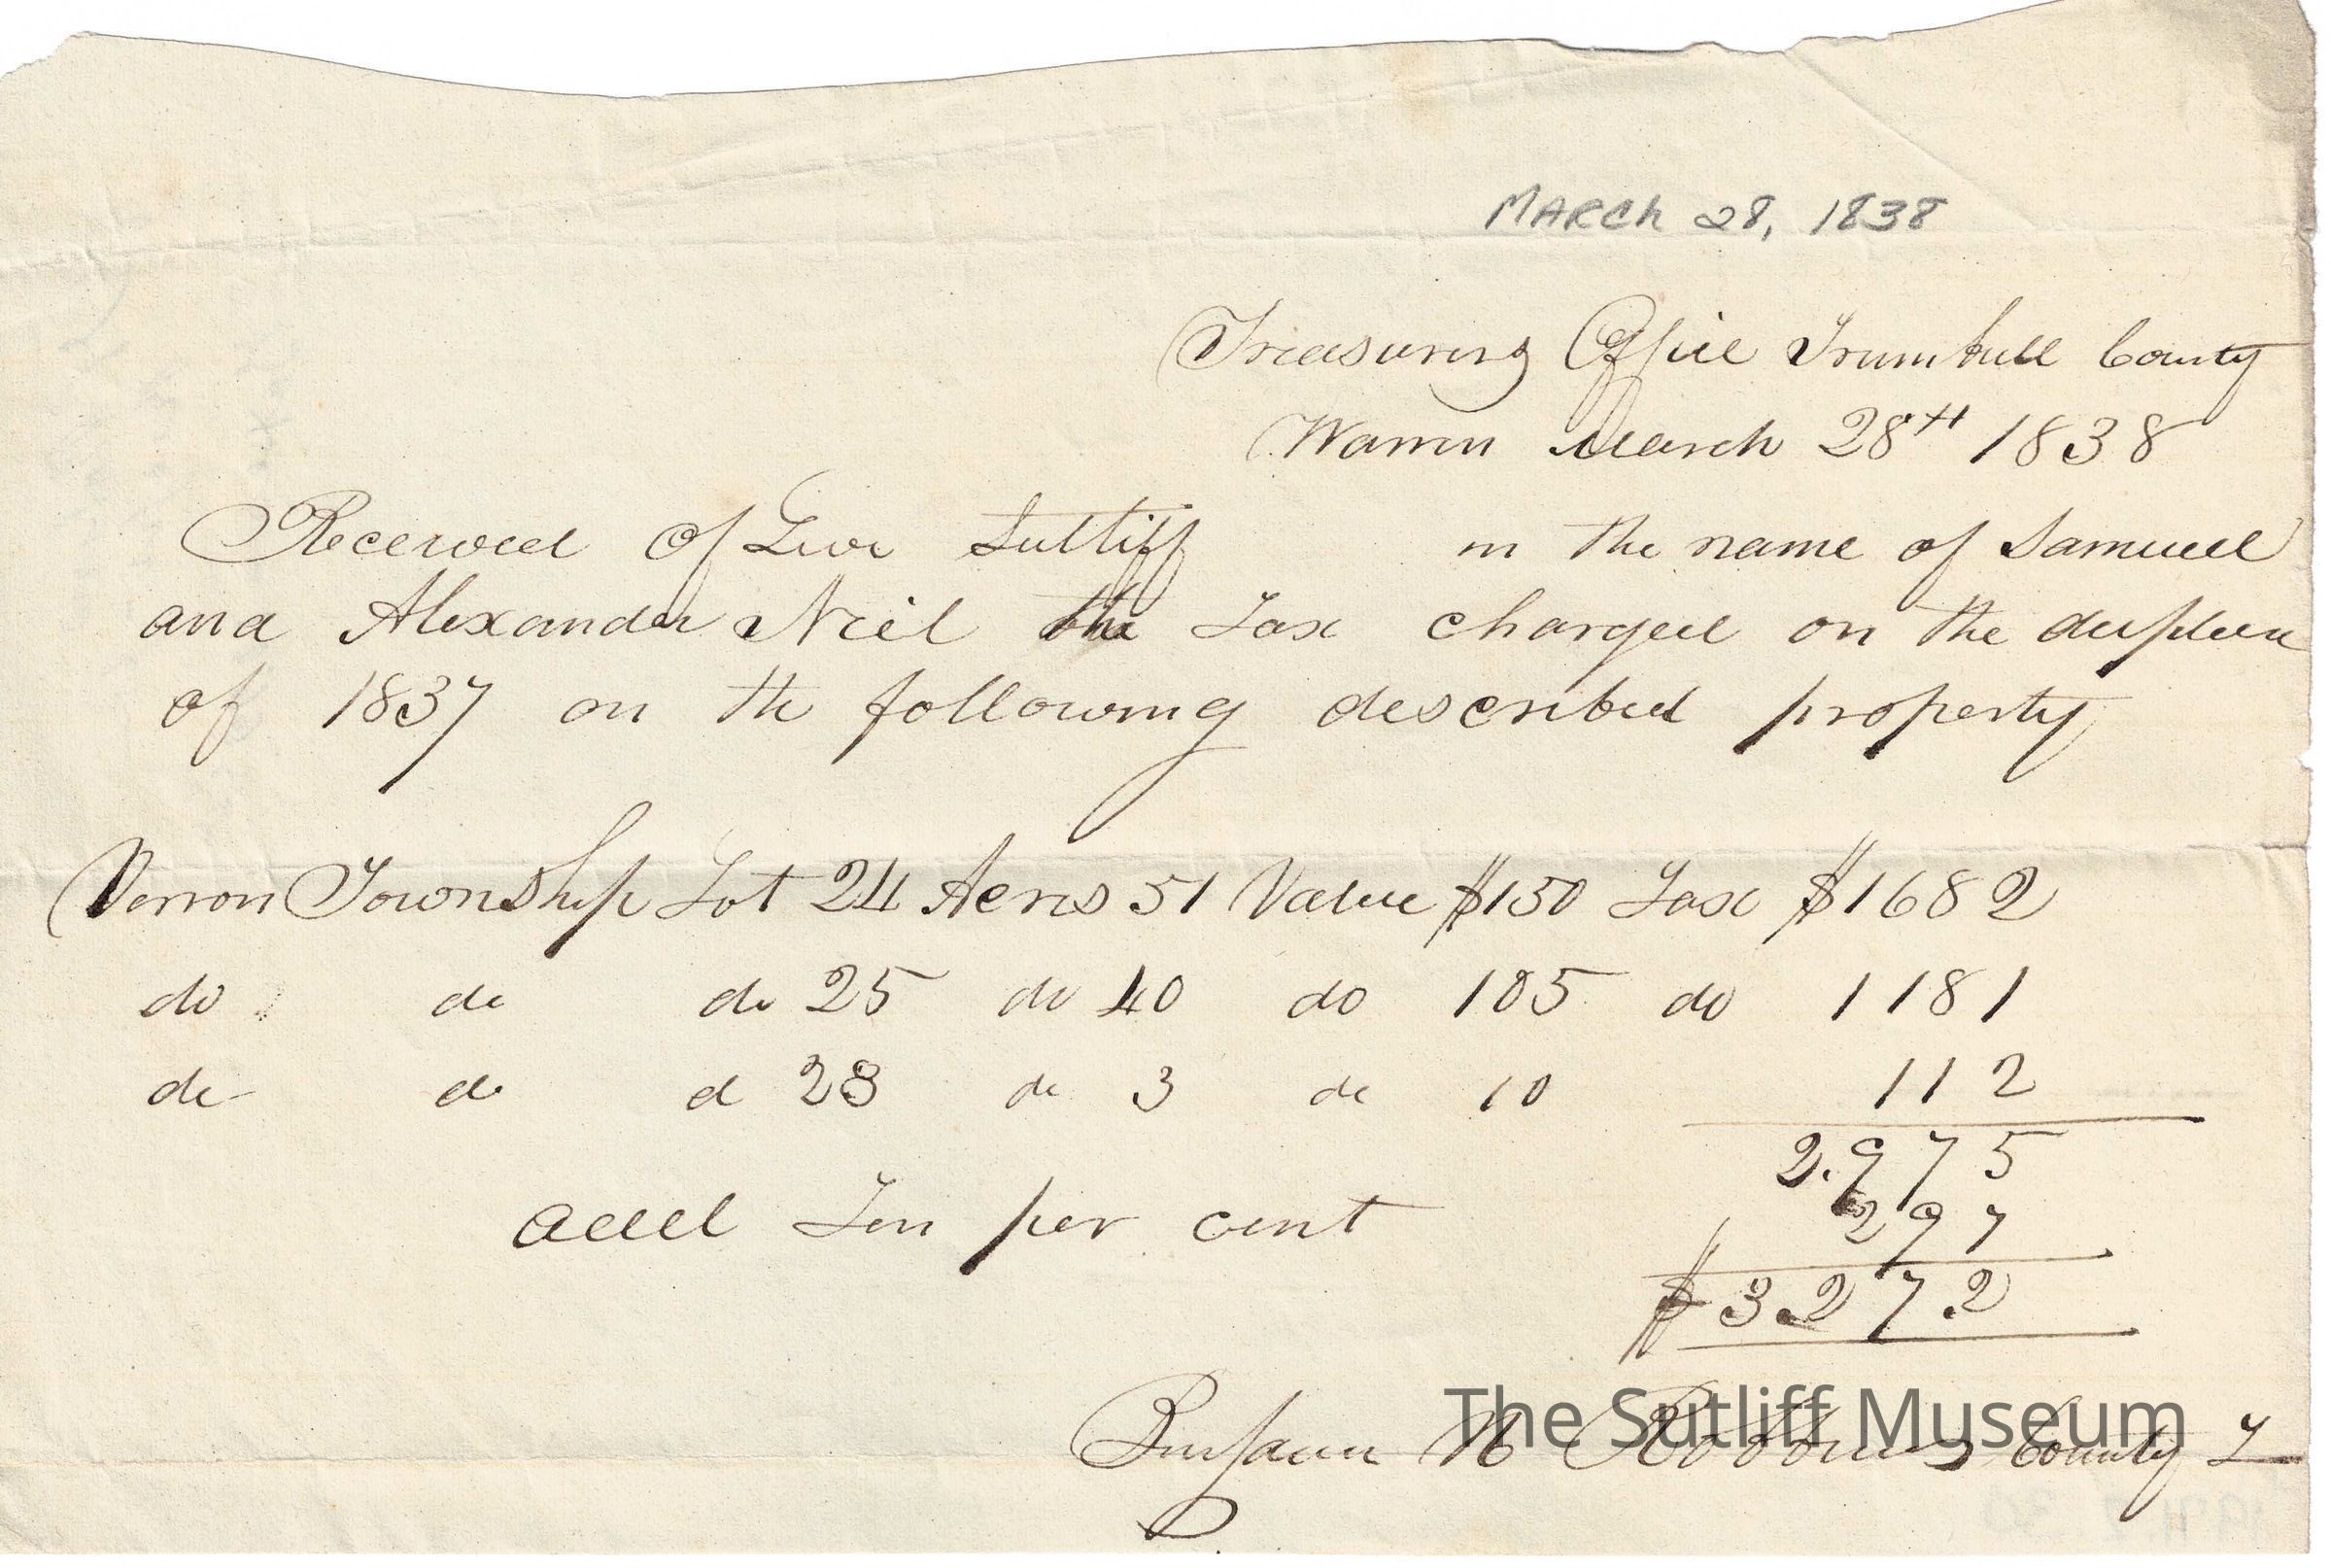 MARCH 28, 1838
Treasurers Office Trumbull County
Warren March 28th 1838
Received of Levi Sutliff in the name of Samuel
and Alexander Niel the Tax charged on the
of 1837 on the following described property
Vernon Township Lot 24 Acres 51 Value $150 Tax $1682
do do do 25 do 40 do 105 do 1181
do do d 28 do 3 do 10 112
2.975
add Ten per cent 297
$3272
Benjamin N Robbins County T
The Sutliff Museum